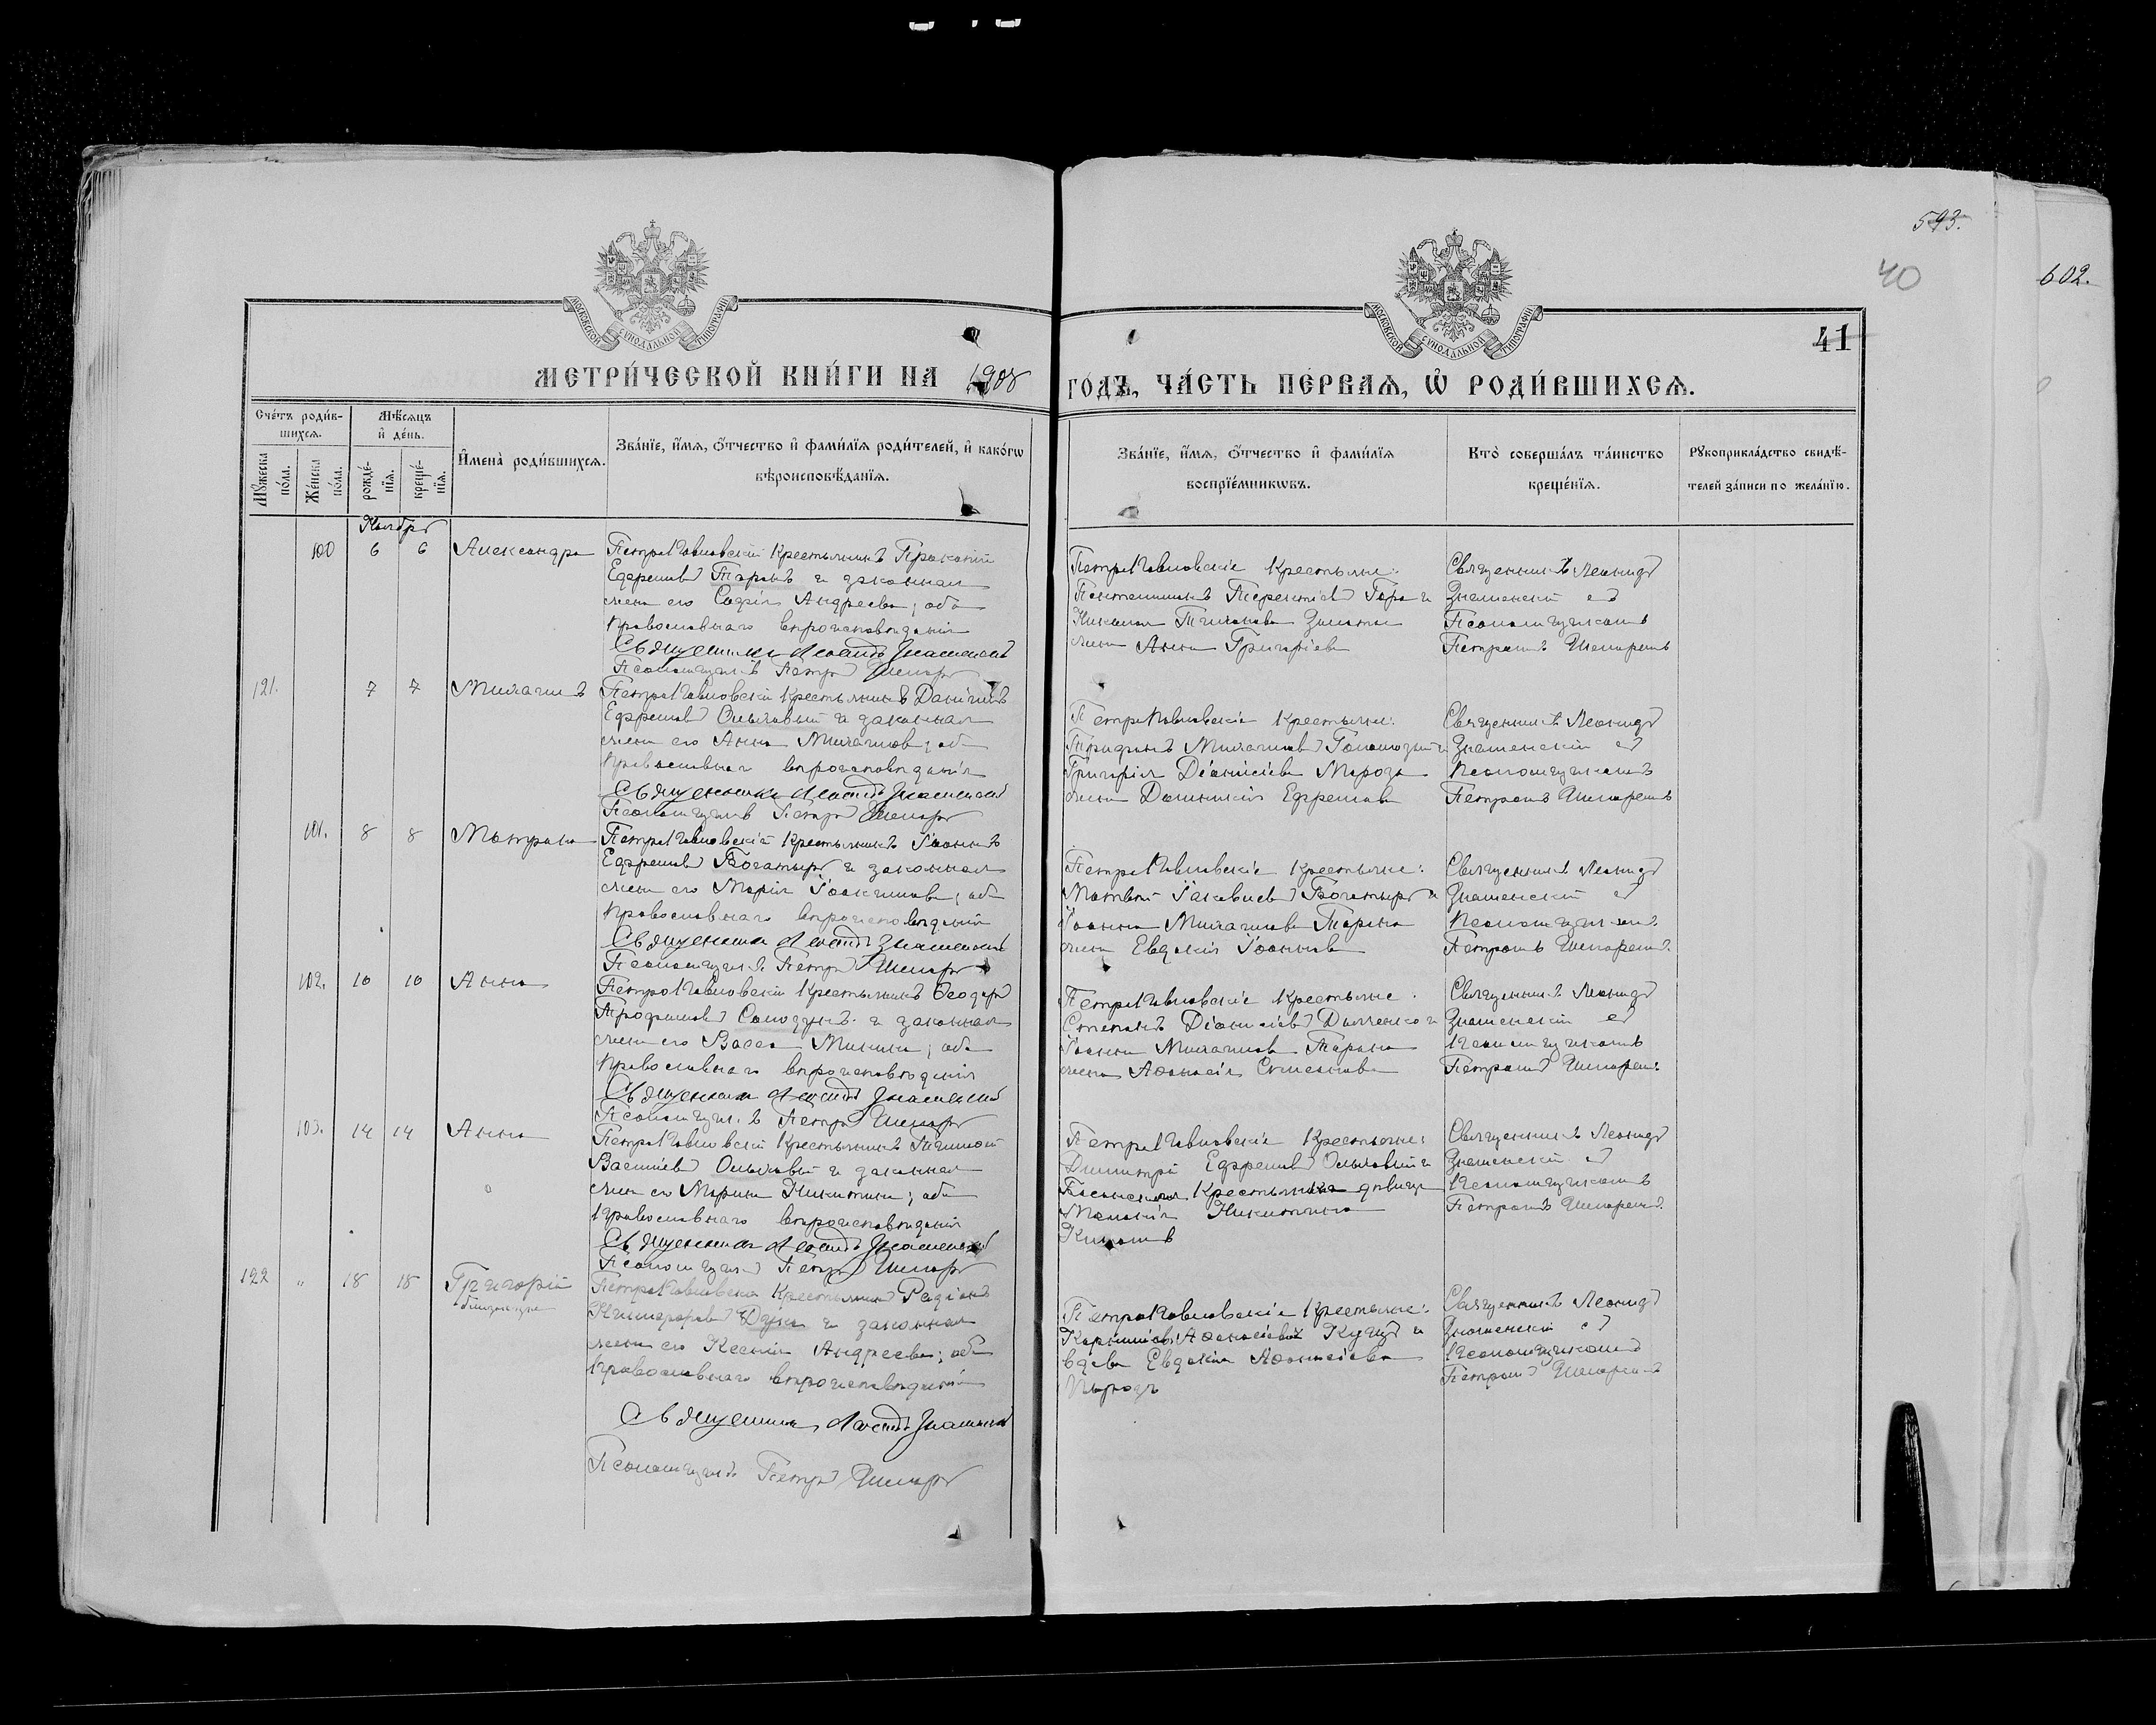 593.
40
602.
41
МОСКОВСКОЙ СѴНОДАЛЬНОЙ ТИПОГРАФІИ
МОСКОВСКОЙ СѴНОДАЛЬНОЙ ТИПОГРАФІИ
МЕТРИ́ЧЕСКОЙ КНИ́ГИ НА 1908 ГО́ДЪ, ЧА́СТЬ ПЕ́РВАѦ, Ѡ҆ РОДИ́ВШИХСѦ.
Сче́тъ роди́в-
шихсѧ.
Мꙋ́жеска
по́ла.
Же́нска
по́ла.
Мѣ́сѧцъ
и҆ де́нь.
рожде́-
нїѧ.
креще́-
нїѧ.
И҆мена̀ роди́вшихсѧ.
Зва́нїе, и҆́мѧ, ѻ҆́тчество и҆ фами́лїѧ роди́телей, и҆ како́гѡ
вѣроисповѣ́данїѧ.
Зва́нїе, и҆́мѧ, ѻ҆́тчество и҆ фами́лїѧ
воспрїе́мникѡвъ.
Кто̀ соверша́лъ та́инство
креще́нїѧ.
Рꙋкоприкла́дство свидѣ́-
телей за́писи по жела́нїю.
Ноябрь
100 6 6 Александра
Петро Павловскій крестьянинъ Прокопій
Ефремовъ Таранъ и законная
жена его Софія Андреева; оба
православнаго вѣроисповѣданія
Священникъ Леонидъ Знаменскій
Псаломщикъ Петръ Шпарь
Петро Павловскіе крестьяне:
Пантелеимонъ Терентіевъ Гора и
Николая
жена Анна Григоріева
Священникъ Леонидъ
Знаменскій съ
Псаломщикомъ
Петромъ Шпаремъ
121. 7 7 Михаилъ
Петро Павловскій крестьянинъ Даніилъ
Ефремовъ Ольховый и законная
жена его Анна Михаилова; оба
православнаго вѣроисповѣданія
Священникъ Леонидъ Знаменскій
Псаломщикъ Петръ Шпарь
Петро Павловскіе крестьяне:
Трифонъ Михаиловъ Голомозый и
Григорія Діонисіева Мороза
жена Домникія Ефремова
Священникъ Леонидъ
Знаменскій съ
Псаломщикомъ
Петромъ Шпаремъ
101. 8 8 Матрона
Петро Павловскій крестьянинъ Іоаннъ
Ефремовъ Богатырь и законная
жена его Марія Іоакимова; оба
православнаго вѣроисповѣданія
Священникъ Леонидъ Знаменскій
Псаломщикъ Петръ Шпарь
Петро Павловскіе крестьяне:
Матвей Іаковлевъ Богатырь и
Іоанна Михаилова Тарана
жена Евдокія Іоаннова
Священникъ Леонидъ
Знаменскій съ
Псаломщикомъ
Петромъ Шпаремъ.
102. 10 10 Анна
Петро Павловскій крестьянинъ Ѳеодоръ
Трофимовъ Солодунъ и законная
жена его Васса Минина; оба
православнаго вѣроисповѣданія
Священникъ Леонидъ Знаменскій
Псаломщикъ Петръ Шпарь
Петро Павловскіе крестьяне:
Степанъ Діонисіевъ Дьяченко и
Іоанна Михаилова Тарана
жена Аѳанасія Степанова
Священникъ Леонидъ
Знаменскій съ
Псаломщикомъ
Петромъ Шпаремъ
103. 14 14 Анна
Петро Павловскій крестьянинъ Тимоѳей
Василіевъ Ольховый и законная
жена его Марина Никитина; оба
православнаго вѣроисповѣданія
Священникъ Леонидъ Знаменскій
Псаломщикъ Петръ Шпарь
Петро Павловскіе крестьяне:
Димитрій Ефремовъ Ольховый и
крестьянка девица
Меланія Никитина
Священникъ Леонидъ
Знаменскій съ
Псаломщикомъ
Петромъ Шпаремъ.
122 " 18 18 Григорій
близнецы
Петро Павловскій крестьянинъ Родіонъ
Никифоровъ Дука и законная
жена его Ксенія Андреева; оба
православнаго вѣроисповѣданія
Священникъ Леонидъ Знаменскій
Псаломщикъ Петръ Шпарь
Петро Павловскіе крестьяне:
Корнилій Аѳанасіевъ Куцъ и
вдова Евдокія Аѳанасіева
Священникъ Леонидъ
Знаменскій съ
Псаломщикомъ
Петромъ Шпаремъ